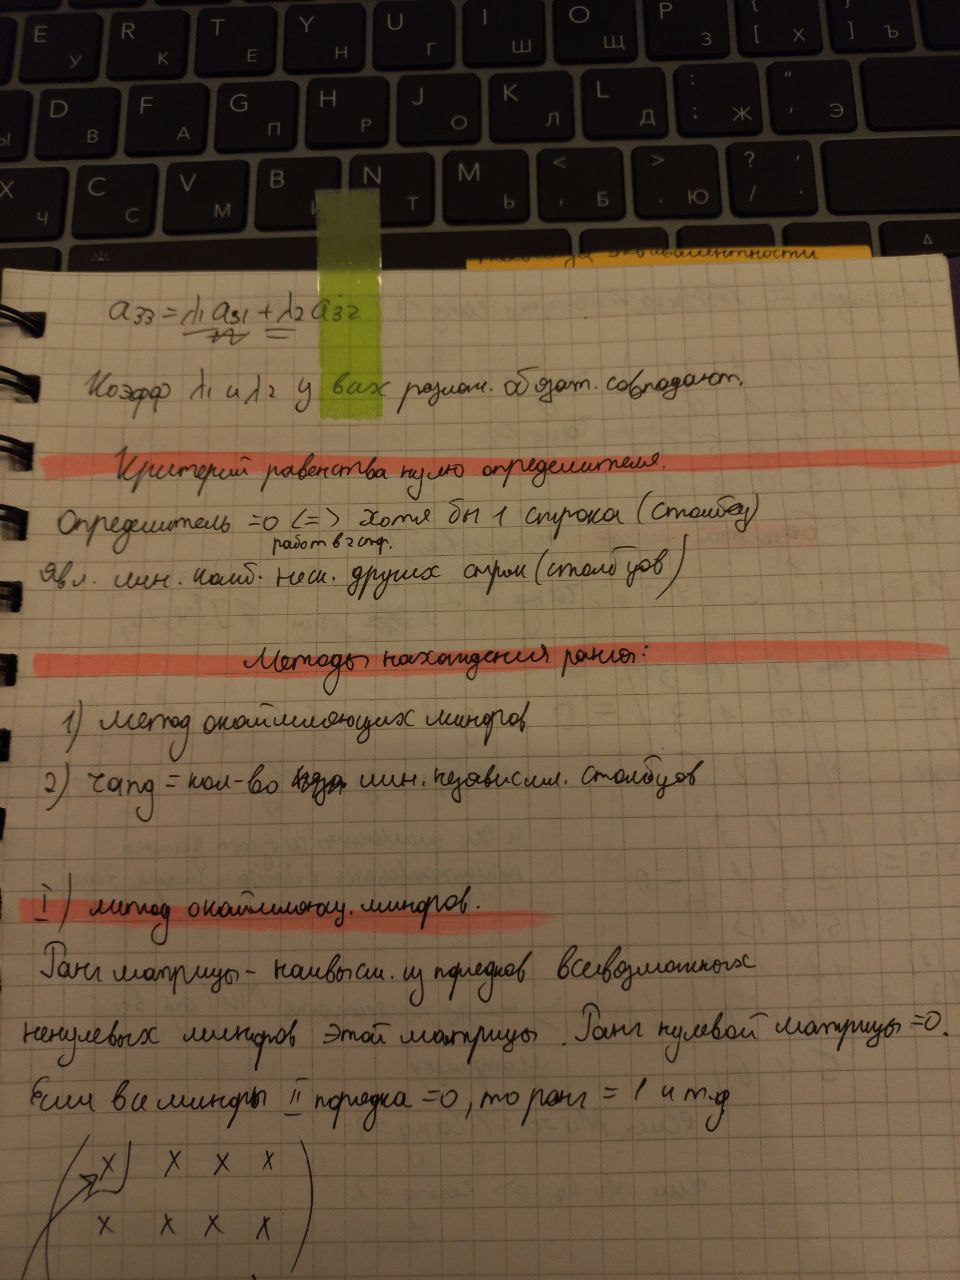 E У R К T Е Y Н U Г I Ш O Щ P З { [ Х ] Ъ
Ы D В F А G П H Р J О K Л L Д : ; Ж " ' Э
X Ч C С V М B И N Т M Ь < , Б > . Ю ? / , .
эквивалентности
a33 = λ1 a31 + λ2 a32
Коэфф λ1 и λ2 у всех разлож. обязат. совпадают.
Критерий равенства нулю определителя.
Определитель =0 <=> хотя бы 1 строка (столбец)
работ в 2 стр.
явл. лин. комб. неск. других строк (столбцов)
Методы нахождения ранга:
1) Метод окаймляющих миноров
2) rang = кол-во лин. независим. столбцов
I) метод окаймляющ. миноров.
Ранг матрицы - наивысш. из порядков всевозможных
ненулевых миноров этой матрицы. Ранг нулевой матрицы =0.
Если все миноры II порядка =0, то ранг = 1 и т.д
x x x x
x x x x